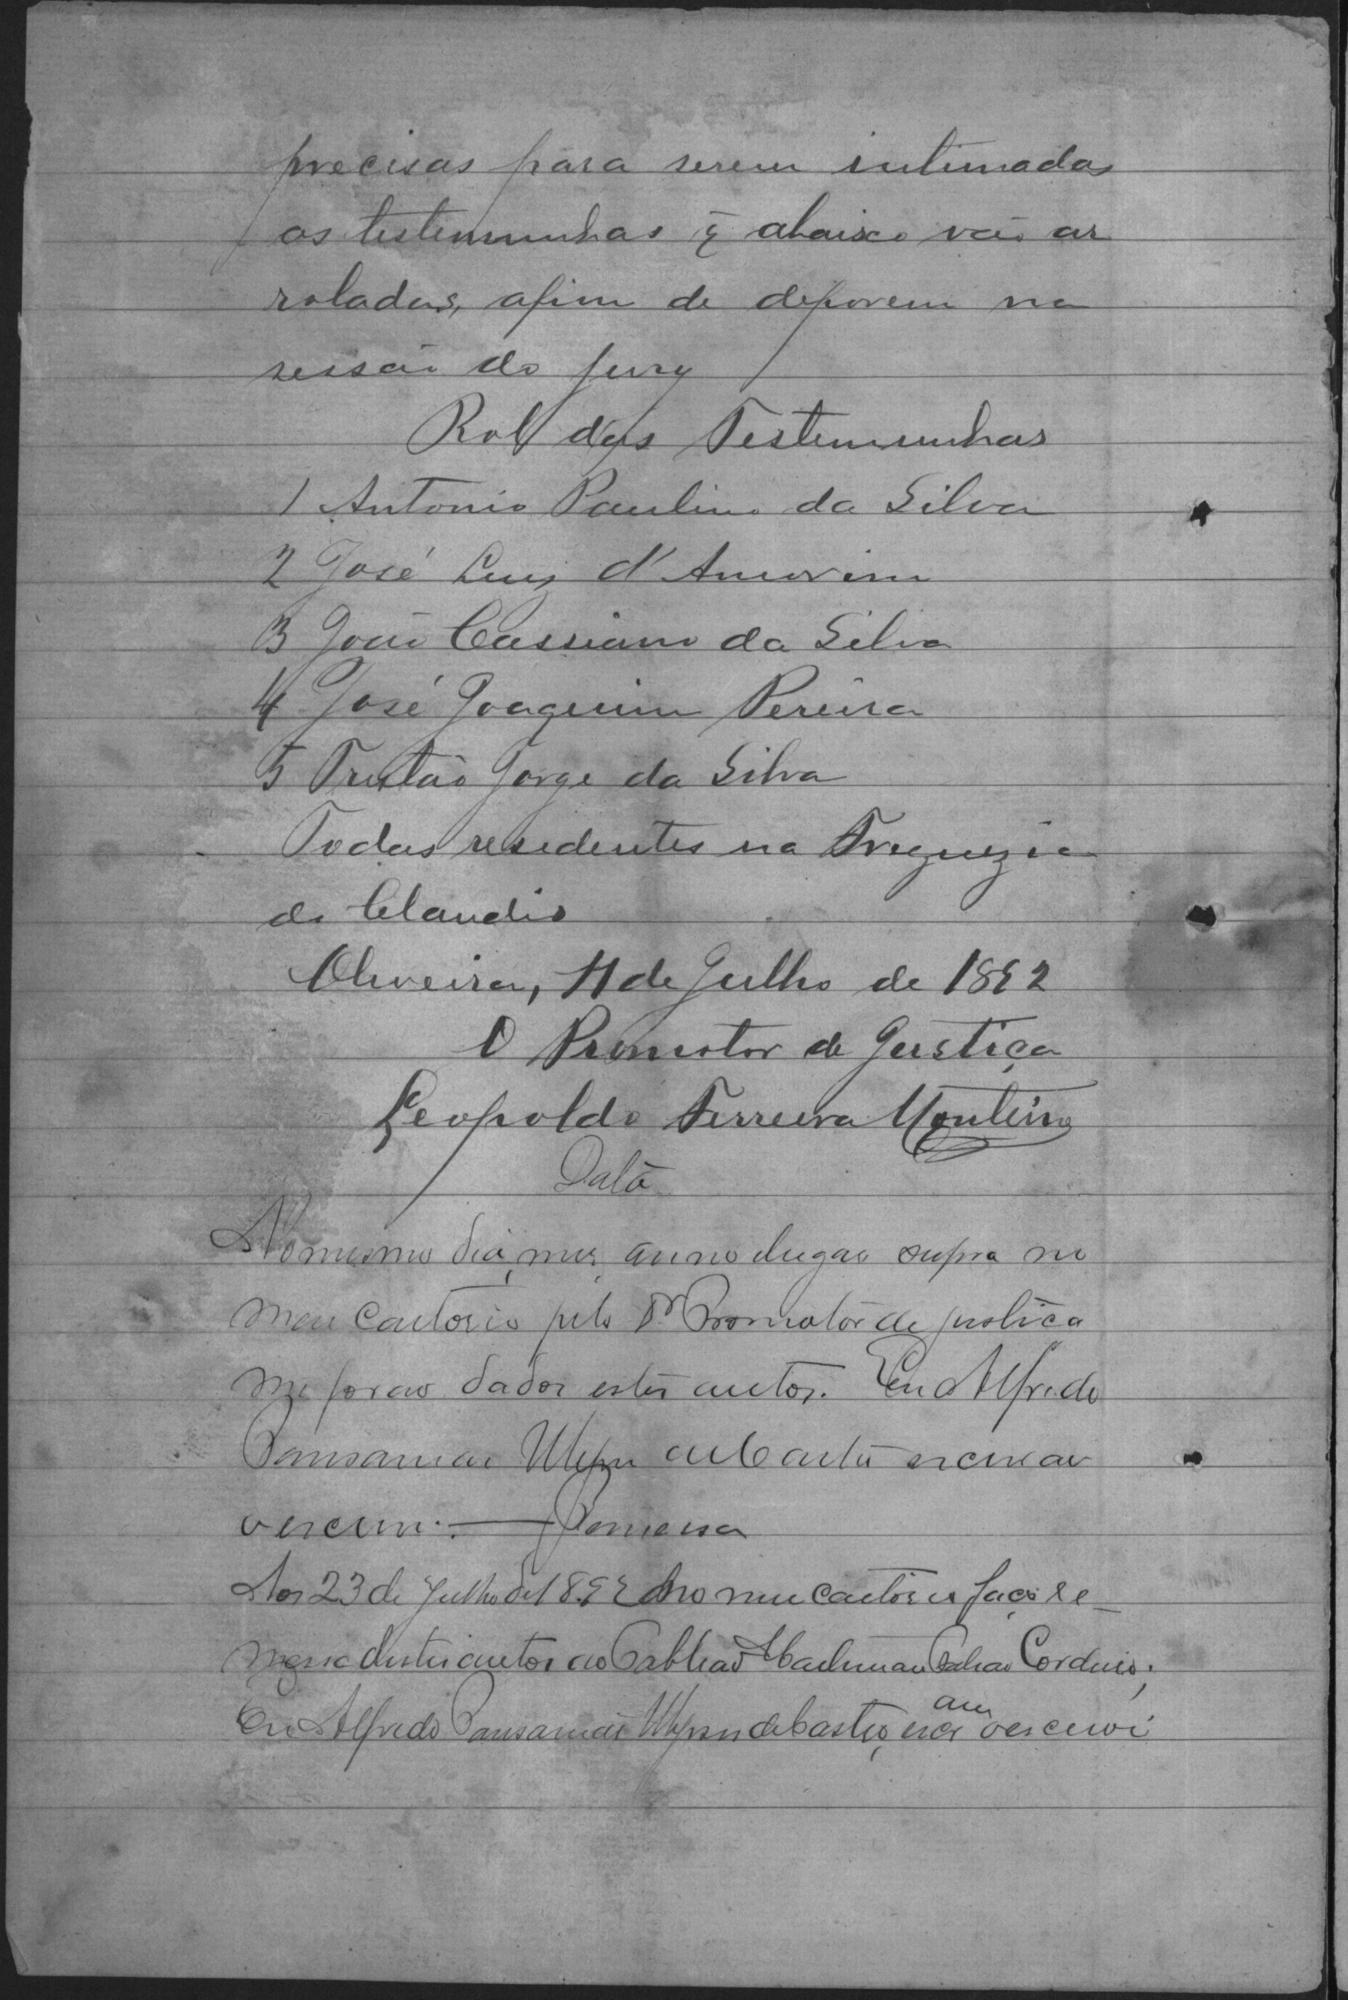 precisas para serem intimadas
as testemunhas q̃ abaixo vão ar
roladas, afim de deporem na
sessão do jury
Rol das Testemunhas
1 Antonio Paulino da Silva
2 José Luiz d'Amorim
3 João Cassiano da Silva
4 José Joaquim Pereira
5 Tristão Jorge da Silva
Todas residentes na Freguezia
do Claudio
Oliveira, 11 de Julho de 1892
O Promotor de Justiça
Leopoldo Ferreira Monteiro
Data
No mesmo dia, mez, anno e lugar supra no
meu Cartorio pelo Dr. Promotor de justiça
me forão dados estes autos. Eu Alfredo
de Castro escrivão
o escrevi. — Remessa
Aos 23 de Julho de 1892 no meu cartorio faço re-
messa destes autos ao Cordeiro.
Eu Alfredo de Castro, o escrevi